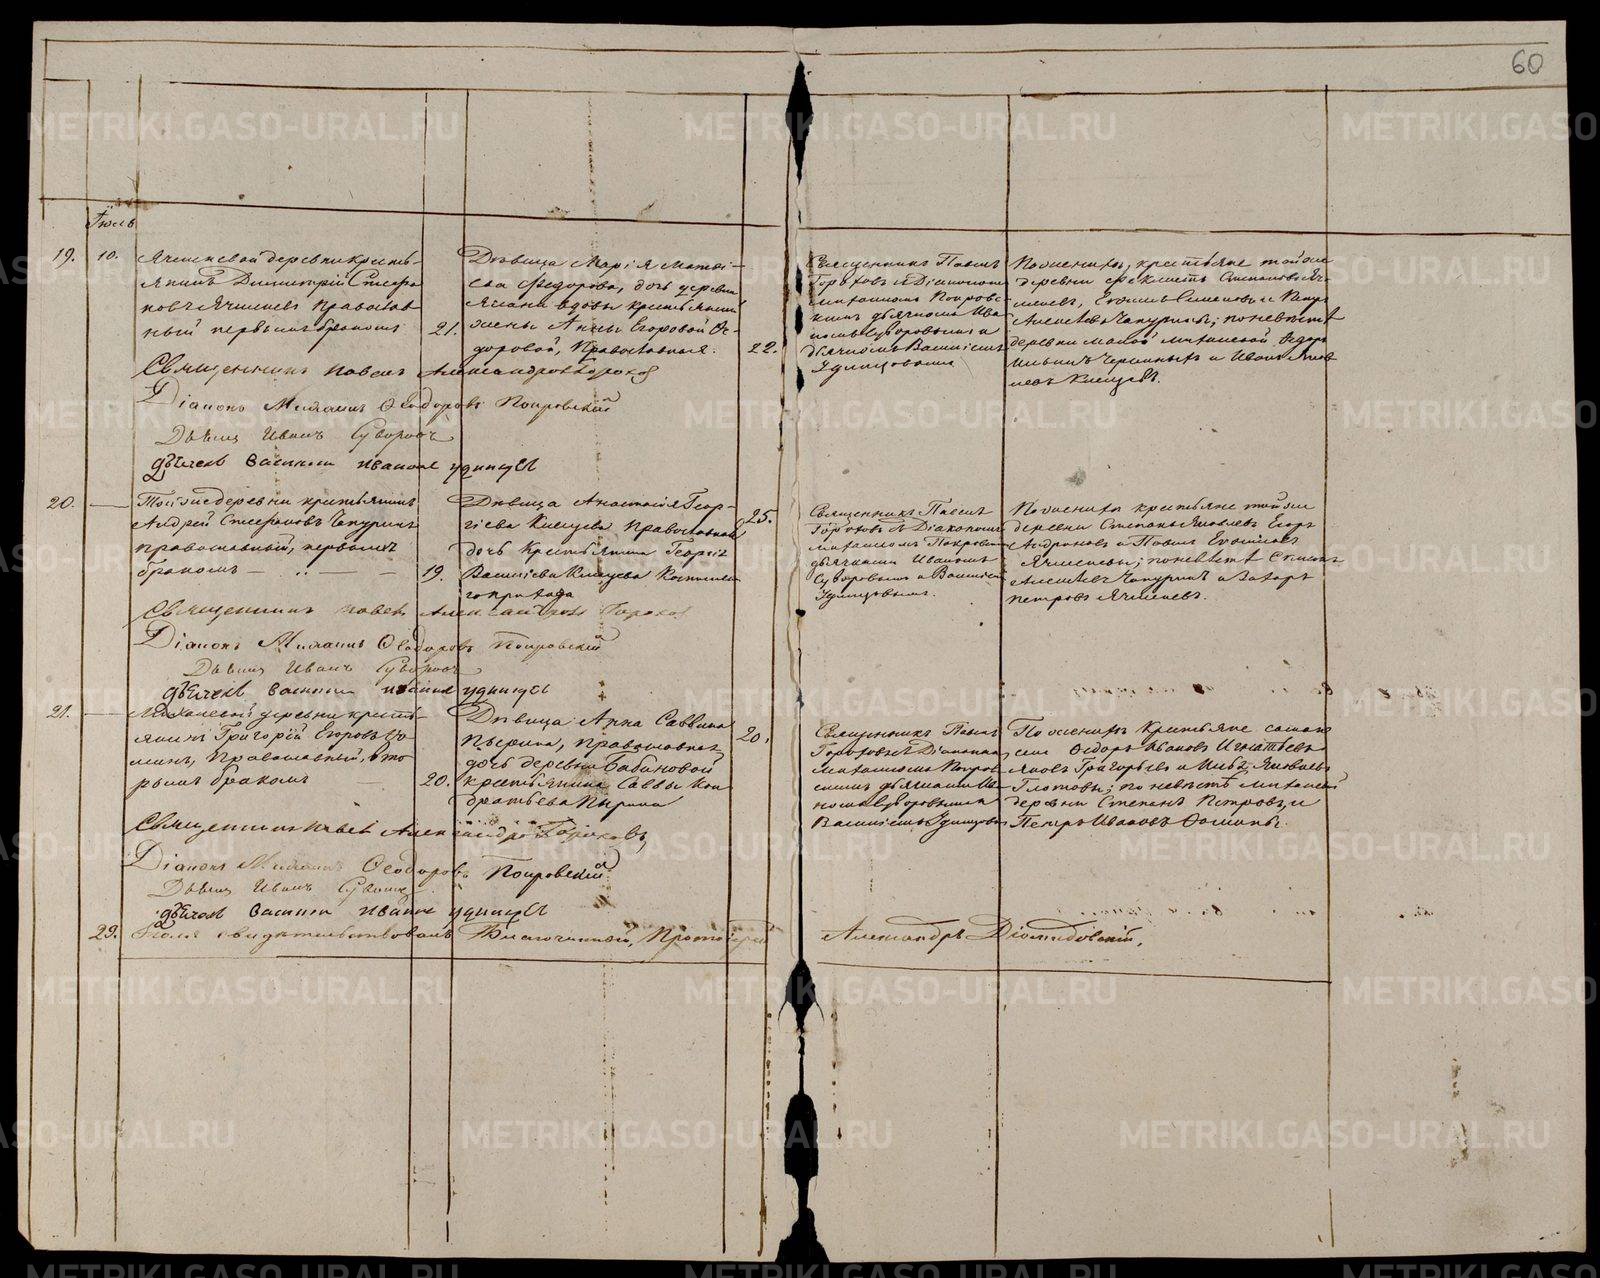 60
Іюль
19. 10. Ячменевой деревни кресть-
янинъ Димитрій Стефа
новъ Ячменевъ Православ-
ный первымъ бракомъ 21.
Дѣвица Марія Матвѣ-
ева Федорова, дочь деревни
вдовы крестьянки
жены Анны Егоровой Фе-
доровой, Православная. 22.
Священникъ Павелъ
Гороховъ Діакономъ
Михаиломъ Покровс-
кимъ дьячкомъ Ива
номъ Суворовымъ и
дьячкомъ Василіемъ
Удинцовымъ
По женихѣ, крестьяне тойже
деревни Стефановъ Яч-
меневъ, Семеновъ и Петръ
Алексѣевъ Чапуринъ; по невѣстѣ
деревни Малой Михалевой Федоръ
Ильинъ и Иванъ Яков
левъ Клещевъ.
Священникъ Павелъ Александровъ Гороховъ
Діаконъ Михаилъ Ѳеодоровъ Покровскій
Дьячекъ Иванъ Суворовъ
дьячекъ Василий Иванов Удинцовъ
20. Тойже деревни крестьянинъ
Андрей Стефановъ Чапуринъ
православный, первымъ
бракомъ 19.
Дѣвица Анастасія Геор-
гіева Клещева Православная
дочь Крестьянина Георгія
Василіева Клещева
го прихода 25.
Священникъ Павелъ
Гороховъ Діакономъ
Михаиломъ Покровскимъ
дьячками Иваномъ
Суворовымъ и Василіемъ
Удинцовымъ.
По женихѣ крестьяне тойже
деревни Степанъ Яковлевъ Егоръ
Андреевъ и Павелъ
Ячменевы; по невѣстѣ
Алексѣевъ Чапуринъ и Захаръ
Петровъ Ячменевъ.
Священникъ Павелъ Александровъ Гороховъ
Діаконъ Михаилъ Ѳеодоровъ Покровскій
Дьячекъ Иванъ Суворовъ
дьячекъ Василий Иванов Удинцовъ
21. Михалевой деревни кресть-
янинъ Григорій Егоровъ Ѳо
минъ, Православный, вто
рымъ бракомъ 20.
Дѣвица Анна Саввина
Пырина, православная
дочь деревни Бабиновой
крестьянина Саввы Кон
дратьева Пырина 20.
Священникъ Павелъ
Гороховъ Діакономъ
Михаиломъ Покров
скимъ дьячками Ива
номъ Суворовымъ и
Василіемъ Удинцовымъ
По женихѣ Крестьяне
села Федоръ Ивановъ Игнатьевъ
Яковъ Григорьевъ и Яковлевъ
Глотовы; по невѣстѣ Михалевой
деревни Степанъ Петровъ и
Петръ Ивановъ Ѳомины.
Священникъ Павелъ Александровъ Гороховъ
Діаконъ Михаилъ Ѳеодоровъ Покровскій
Дьячекъ Иванъ Суворовъ
дьячекъ Василий Иванов Удинцовъ
29. Іюля свидѣтельствовалъ Благочинный, Протоіерей Александръ Діомидовскій.
METRIKI.GASO-URAL.RU